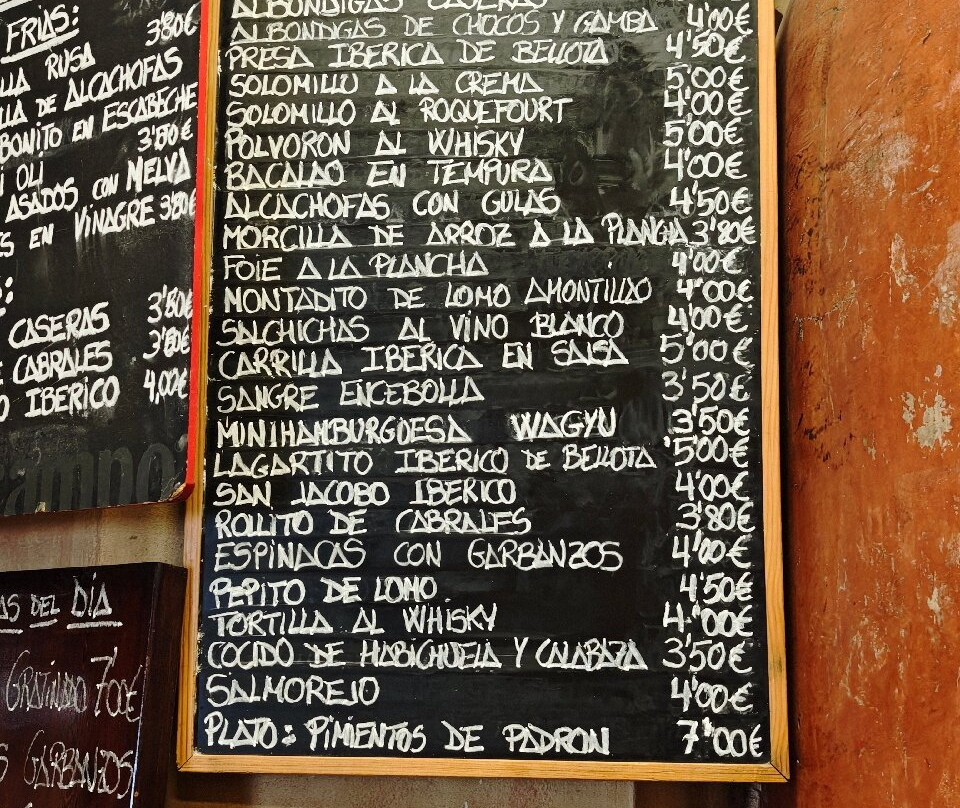 FRIAS:
3'80€
RUSA
DE ALCACHOFAS
BONITO EN ESCABECHE
3'80€
OLI
ASADOS CON MELVA
EN VINAGRE 3'80€
CASERAS 3'80€
CABRALES 3'80€
IBERICO 4,00€
AS DEL DÍA
GRATINADO 7'00€
GARBANZOS
ALBONDIGAS CASERAS
ALBONDIGAS DE CHOCOS Y GAMBA 4'00€
PRESA IBERICA DE BELLOTA 4'50€
SOLOMILLO A LA CREMA 5'00€
SOLOMILLO AL ROQUEFOURT 4'00€
POLVORON AL WHISKY 5'00€
BACALAO EN TEMPURA 4'00€
ALCACHOFAS CON GULAS 4'50€
MORCILLA DE ARROZ A LA PLANCHA 3'80€
FOIE A LA PLANCHA 4'00€
MONTADITO DE LOMO AMONTILLAO 4'00€
SALCHICHAS AL VINO BLANCO 4'00€
CARRILLA IBERICA EN SALSA 5'00€
SANGRE ENCEBOLLA 3'50€
MINIHAMBURGUESA WAGYU 3'50€
LAGARTITO IBERICO DE BELLOTA 5'00€
SAN JACOBO IBERICO 4'00€
ROLLITO DE CABRALES 3'80€
ESPINACAS CON GARBANZOS 4'00€
PEPITO DE LOMO 4'50€
TORTILLA AL WHISKY 4'00€
COCIDO DE HABICHUELA Y CALABAZA 3'50€
SALMOREJO 4'00€
PLATO: PIMIENTOS DE PADRON 7'00€